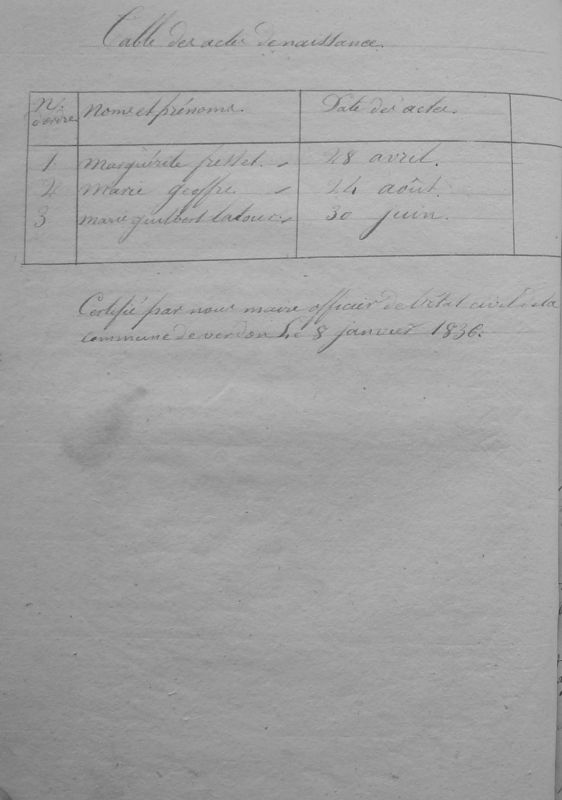 Table des actes de naissance.
N.º d'ordre Noms et prénoms. Date des actes.
1 Marguérite fresset. 28 avril.
2 Marie geoffre. 24 août.
3 marie guilbert 30 juin.
Certifié par nous maire officier de l'état civil de la
commune de verdon le 8 janvier 1836.